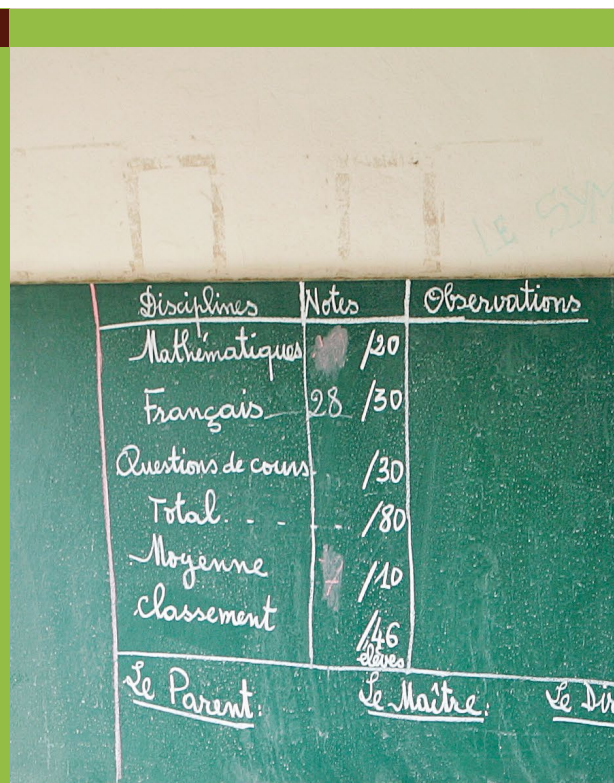 LE
Disciplines Notes Observations
Mathématiques /20
Français 28 /30
Questions de cours. /30
Total. . - - . . . /80
Moyenne /10
classement
/46
élèves
Le Parent: Le Maître: Le Dir